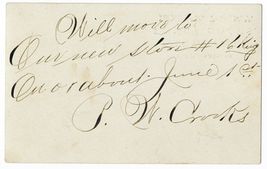 Will move to
Our new Store # 16 King
On or about June 1st
P. W. Crooks